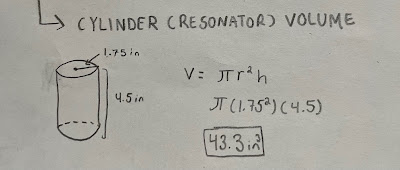 CYLINDER (RESONATOR) VOLUME
1.75in
4.5in
V = πr²h
π(1.75²)(4.5)
43.3in³